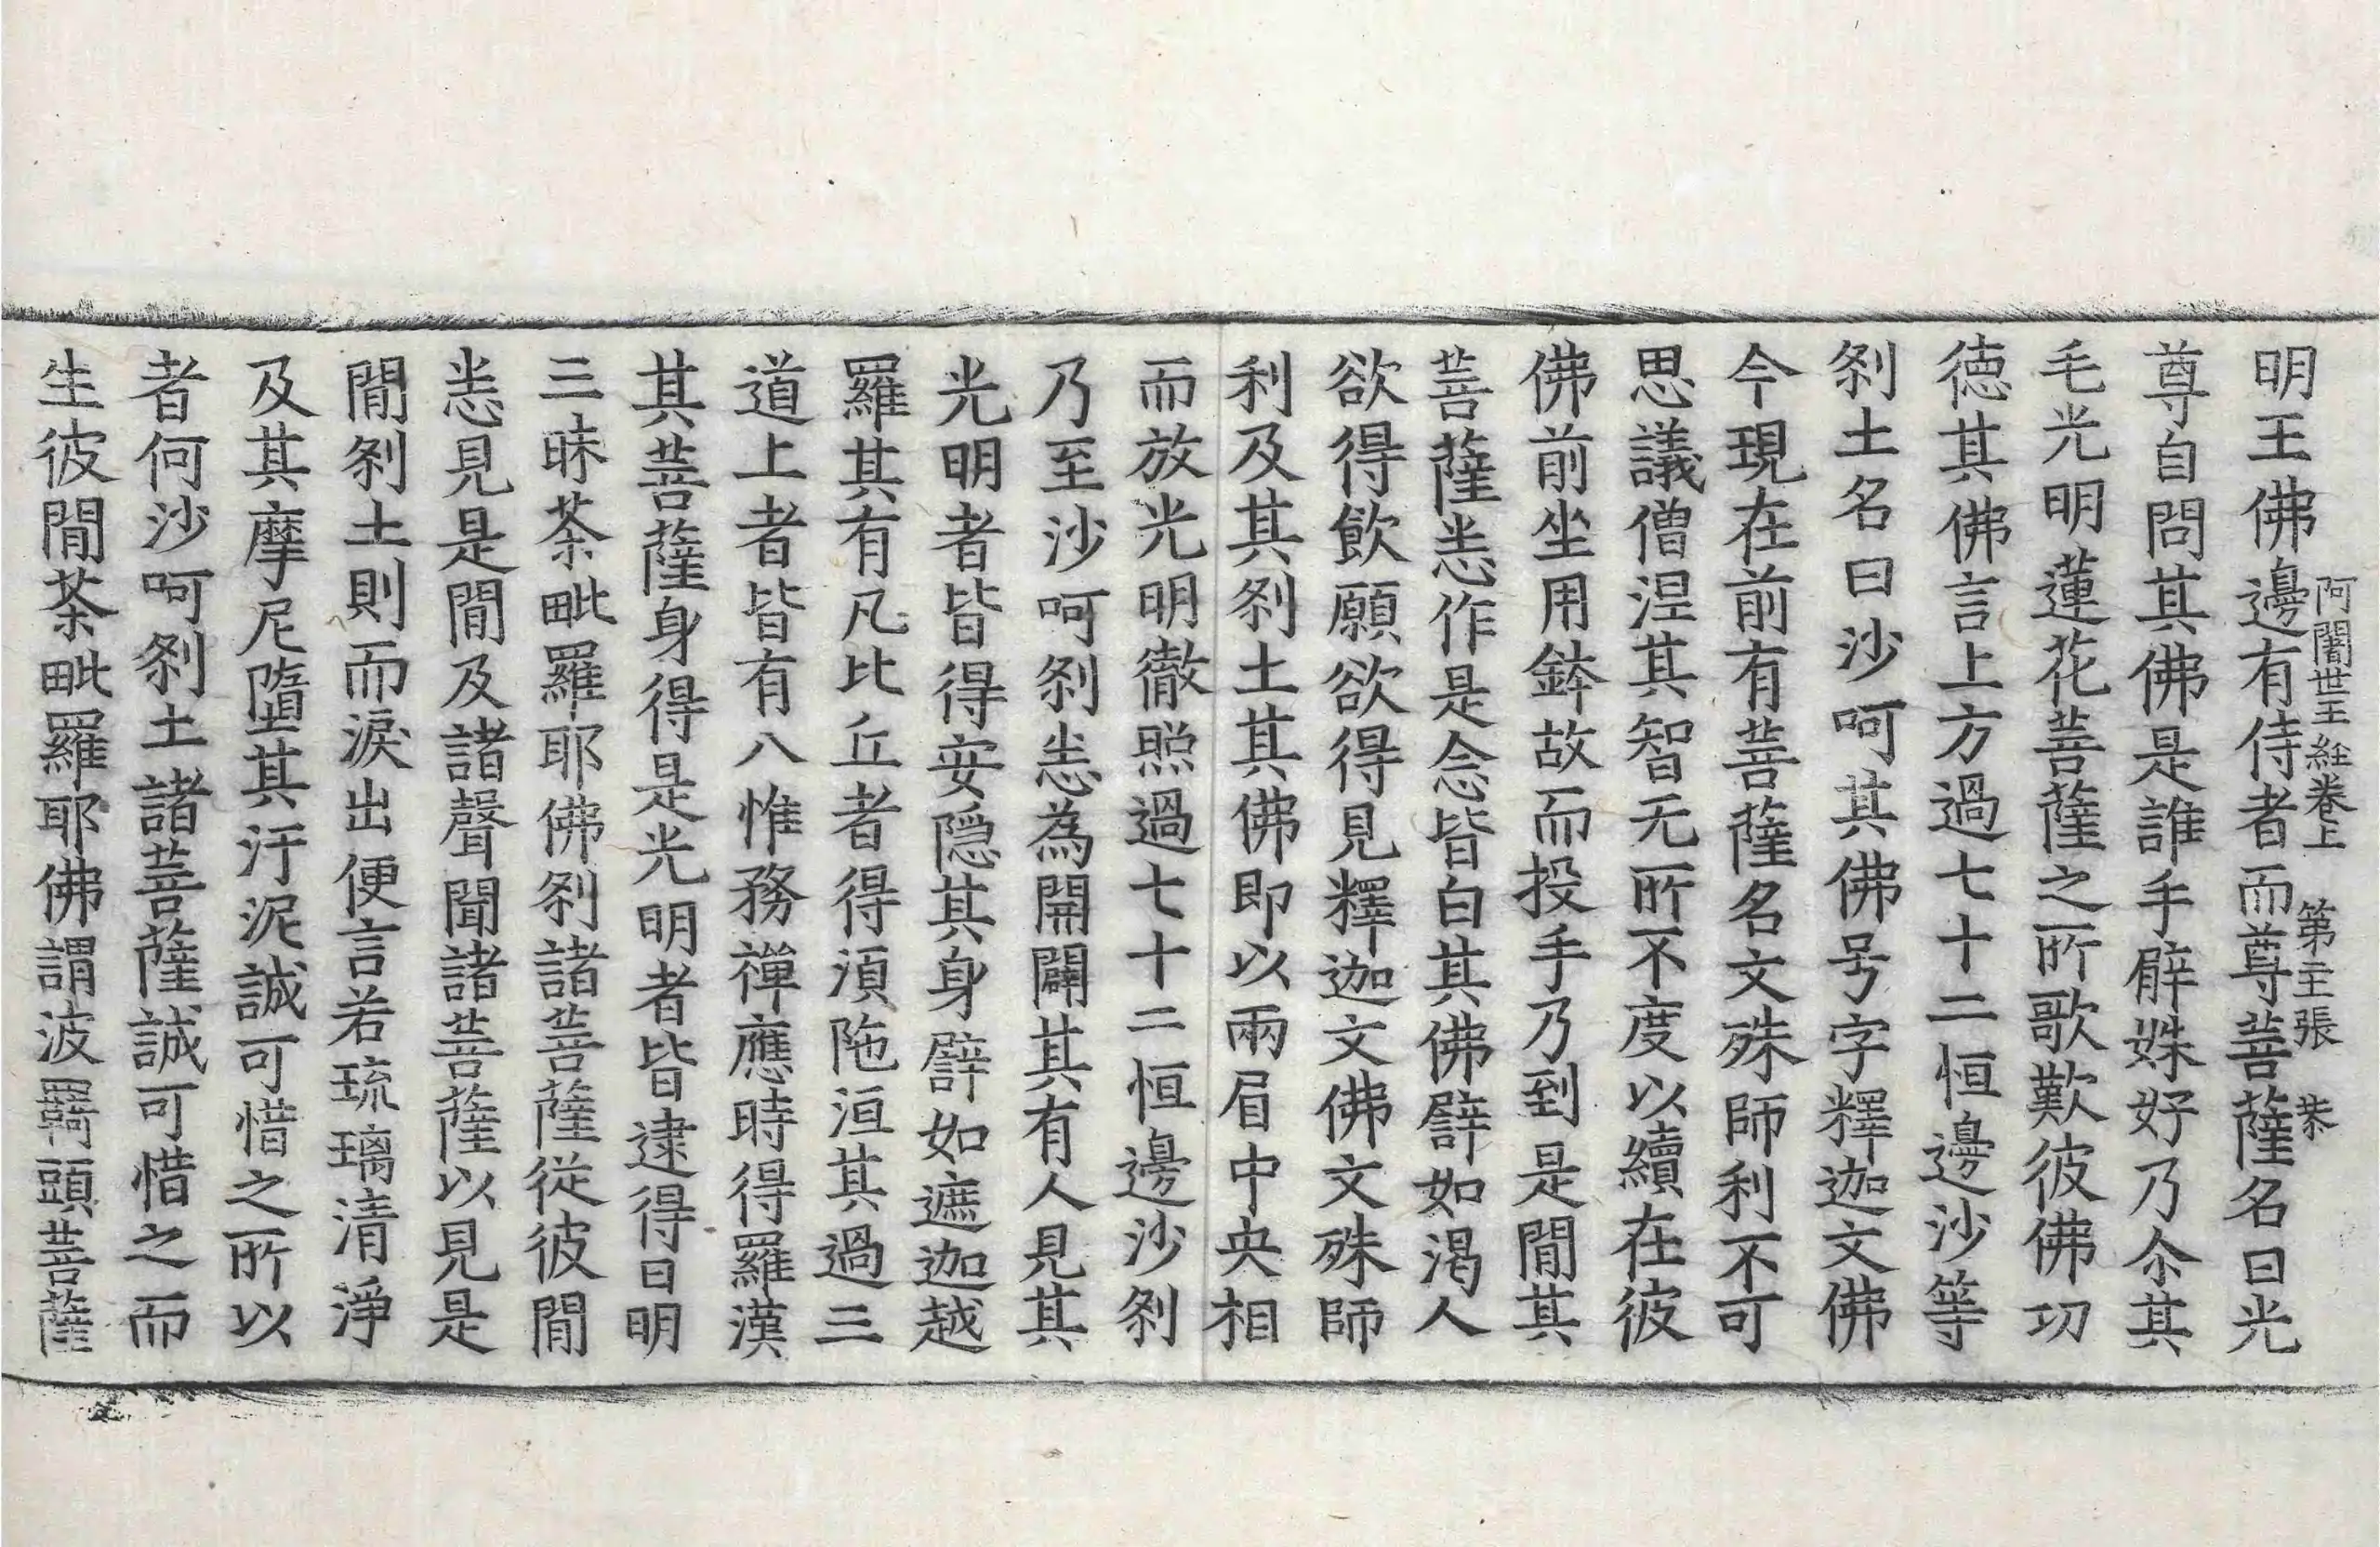 阿闍世王經卷上 第主張 恭
明王佛邊有侍者而尊菩薩名曰光
尊自問其佛是誰手臂姝好乃尒其
毛光明蓮花菩薩之所歌歎彼佛功
德其佛言上方過七十二恒邊沙等
刹土名曰沙呵其佛号字釋迦文佛
今現在前有菩薩名文殊師利不可
思議僧涅其智无所不度以續在彼
佛前坐用鉢故而投手乃到是閒其
菩薩悉作是念皆白其佛譬如渴人
欲得飲願欲得見釋迦文佛文殊師
利及其刹土其佛即以兩眉中央相
而放光明徹照過七十二恒邊沙刹
乃至沙呵刹悉為開闢其有人見其
光明者皆得安隠其身譬如遮迦越
羅其有凡比丘者得湏陁洹其過三
道上者皆有八惟務禪應時得羅漢
其菩薩身得是光明者皆逮得日明
三昧荼毗羅耶佛刹諸菩薩従彼閒
悉見是閒及諸聲聞諸菩薩以見是
閒刹土則而淚出便言若琉璃清淨
及其摩尼墮其汙泥誠可惜之所以
者何沙呵刹土諸菩薩誠可惜之而
生彼閒荼毗羅耶佛謂波羇頭菩薩